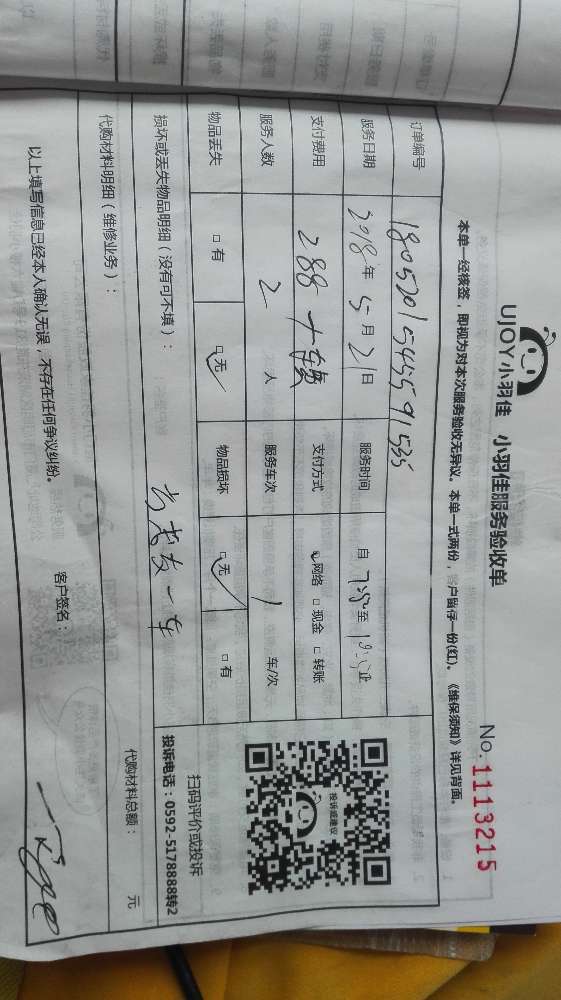 UJOY小羽佳 小羽佳服务验收单
No. 1113215
本单一经核签，即视为对本次服务验收无异议。本单一式两份，客户留存一份(红)。《维保须知》详见背面。
订单编号 1805201545591535
服务日期 2018年5月21日 服务时间 自 至 止
支付费用 288 支付方式 网络 现金 转账
服务人数 2 人 服务车次 1 车/次
物品丢失 有 无 物品损坏 无 有
损坏或丢失物品明细（没有可不填）：
代购材料明细（维修业务）：
代购材料总额： 元
投诉或建议
扫码评价或投诉
投诉电话：0592-5178888转2
以上填写信息已经本人确认无误，不存在任何争议纠纷。 客户签名：